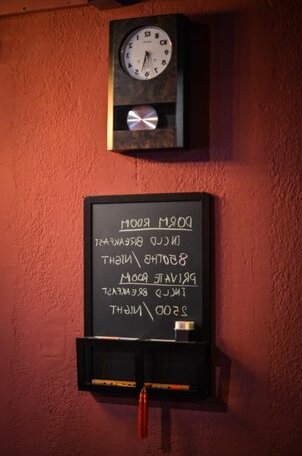 DORM ROOM
INCLD BREAKFAST
850THB/NIGHT
PRIVATE ROOM
INCLD BREAKFAST
2500/NIGHT